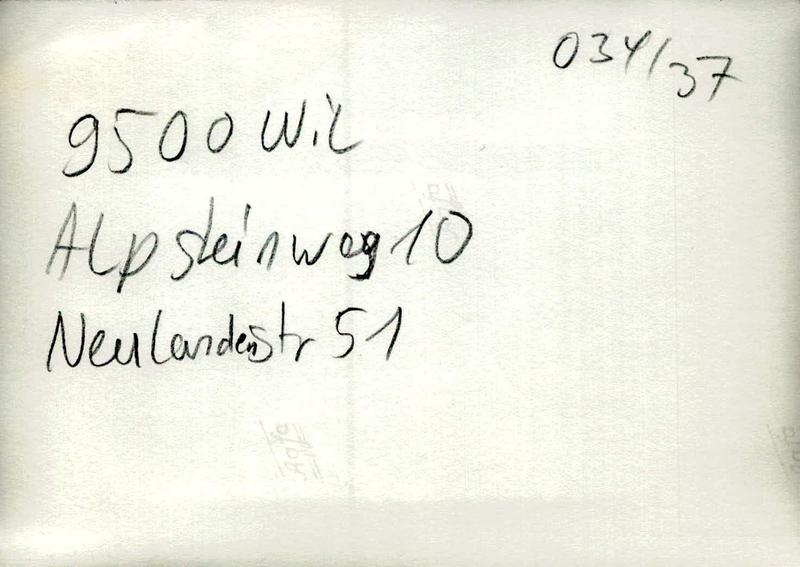 034/37
9500 Wil
Alpsteinweg 10
Neulandenstr 51